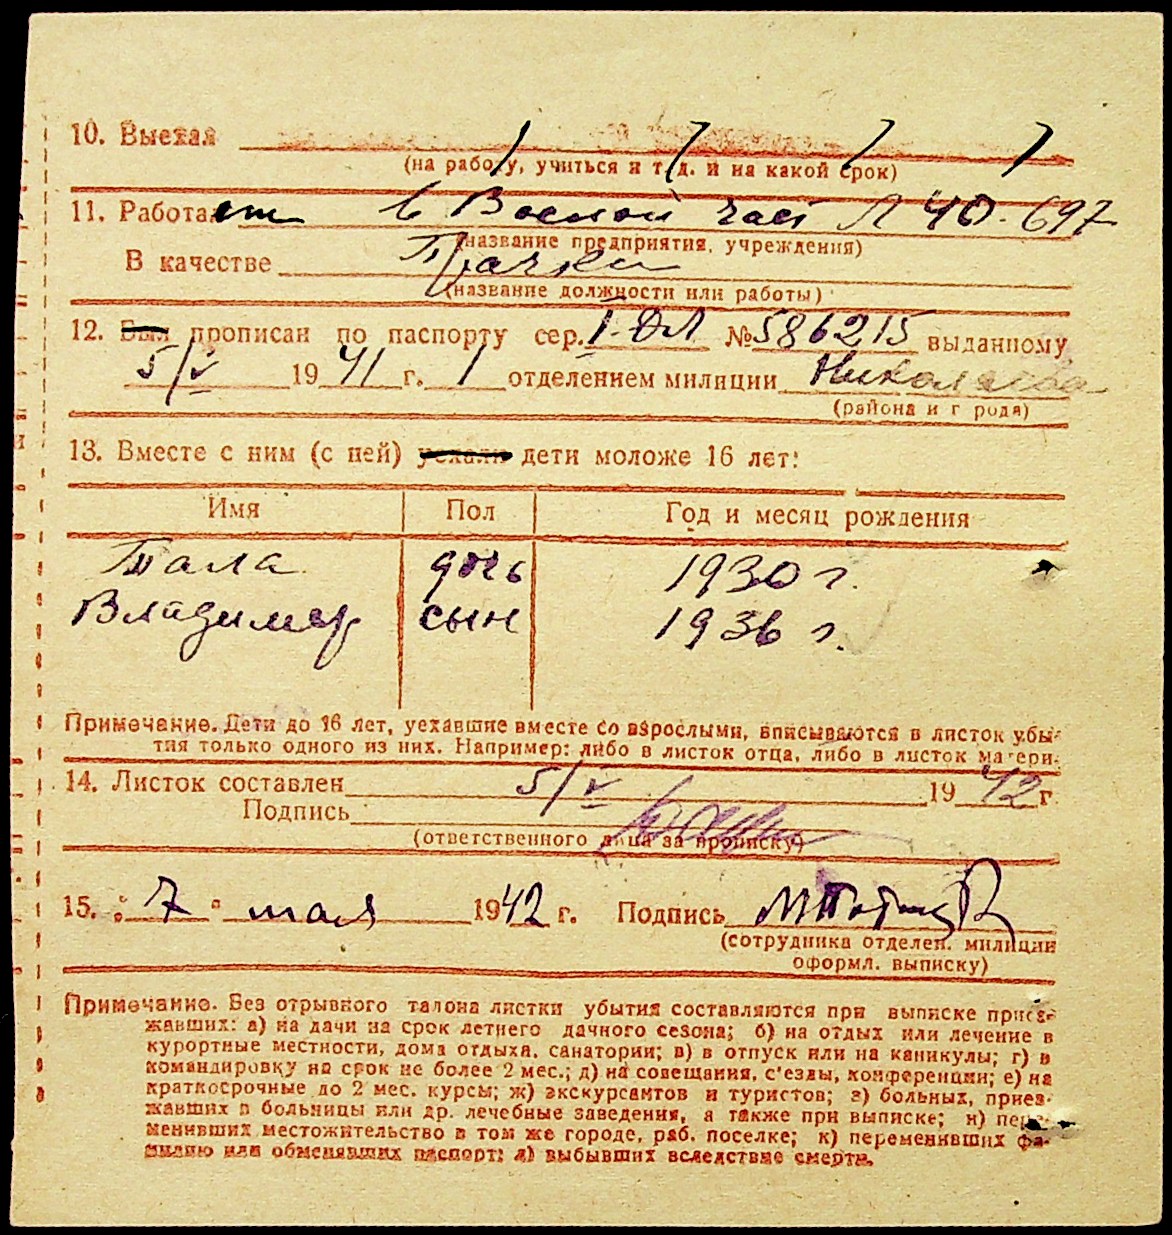 10. Выехал
(на работу, учиться и т. д. и на какой срок)
11. Работает в Военой част Л 40-697
(название предприятия, учреждения)
В качестве Прачки
(название должности или работы)
12. Был прописан по паспорту сер. I-ОЛ № 586215 выданному
5/V 1941 г. 1 отделением милиции Николаева
(района и г рода)
13. Вместе с ним (с ней) уехали дети моложе 16 лет:
Имя Пол Год и месяц рождения
Тала дочь 1930 г.
Владимер сын 1936 г.
Примечание. Дети до 16 лет, уехавшие вместе со взрослыми, вписываются в листок убы-
тия только одного из них. Например: либо в листок отца, либо в листок матери.
14. Листок составлен 5/V 1942 г
Подпись
(ответственного лица за прописку)
15. „7" мая 1942 г. Подпись
(сотрудника отделен. милиции
оформл. выписку)
Примечание. Без отрывного талона листки убытия составляются при выписке приез-
жавших: а) на дачи на срок летнего дачного сезона; б) на отдых или лечение в
курортные местности, дома отдыха, санатории; в) в отпуск или на каникулы; г) в
командировку на срок не более 2 мес.; д) на совещания, с'езды, конференции; е) на
краткосрочные до 2 мес. курсы; ж) экскурсантов и туристов; з) больных, приез-
жавших в больницы или др. лечебные заведения, а также при выписке; и) пере-
менивших местожительство в том же городе, раб. поселке; к) переменивших фа-
милию или обменявших паспорт; л) выбывших вследствие смерти.